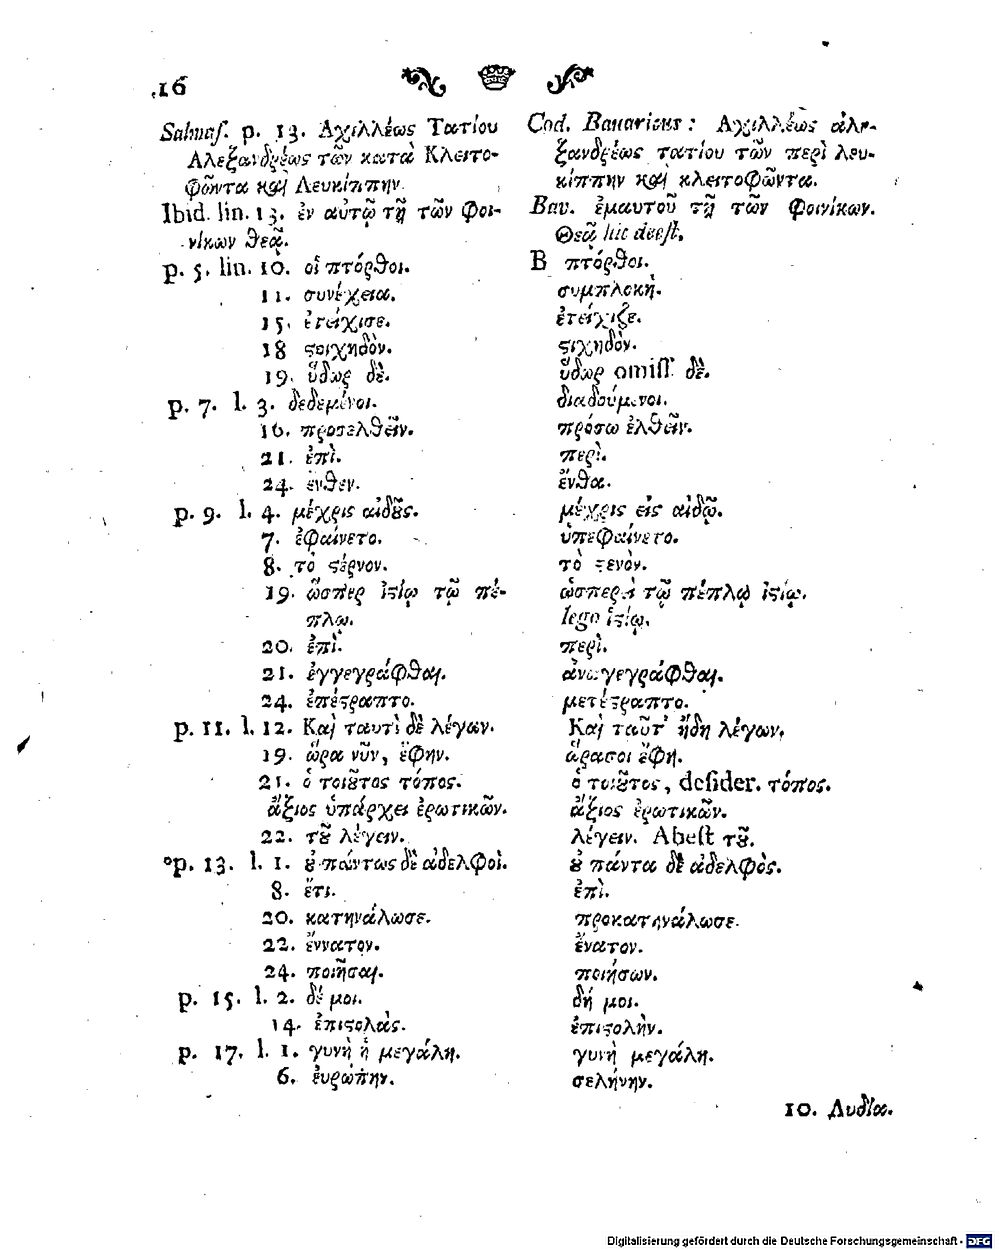 16
Salmas. p. 13. Αχιλλέως Τατίου
Αλεξανδρέως τῶν κατὰ Κλειτο-
φῶντα καὶ Λευκίππην.
Ibid. lin. 13. ἐν αὐτῷ τῇ τῶν Φοι-
νίκων θεᾷ.
p. 5. lin. 10. οἱ πτόρθοι.
11. συνέχεια.
15. ἐτείχισε.
18 ϛοιχηδὸν.
19. ὕδωρ δὲ.
p. 7. l. 3. δεδεμένοι.
16. προσελθεῖν.
21. ἐπὶ.
24. ἐνθεν.
p. 9. l. 4. μέχρις αἰδȣ͂ς.
7. ἐφαίνετο.
8. τὸ ϛέρνον.
19. ὥσπερ ἱϛίῳ τῷ πέ-
πλῳ.
20. ἐπὶ.
21. ἐγγεγράφθαι.
24. ἐπέϛραπτο.
p. 11. l. 12. Καὶ ταυτὶ δὲ λέγων.
19. ὥρα νῦν, ἔφην.
21. ὁ τοιȣ͂τος τόπος.
ἄξιος ὑπάρχει ἐρωτικῶν.
22. τȣ͂ λέγειν.
p. 13. l. 1. ȣ πάντως δὲ ἀδελφοὶ.
8. ἔτι.
20. κατηνάλωσε.
22. ἔννατον.
24. ποιῆσαι.
p. 15. l. 2. δέ μοι.
14. ἐπιϛολὰς.
p. 17. l. 1. γυνὴ ἡ μεγάλη.
6. ἐυρώπην.
Cod. Bauaricus: Αχιλλέως ἀλε-
ξανδρέως τατίου τῶν περὶ λευ-
κίππην καὶ κλειτοφῶντα.
Bav. ἐμαυτοῦ τῇ τῶν Φοινίκων.
Θεᾷ hic deest.
B πτόρθοι.
συμπλοκὴ.
ἐτείχιζε.
ϛιχηδὸν.
ὕδωρ omiss. δὲ.
διαδούμενοι.
πρόσω ἐλθεῖν.
περὶ.
ἔνθα.
μέχρις εἰς αἰδῶ.
ὑπεφαίνετο.
τὸ ϛενὸν.
ὡσπερεὶ τῷ πέπλῳ ἱϛίῳ.
lego ἱϛίῳ.
περὶ.
ἀναγεγράφθαι.
μετέϛραπτο.
Καὶ ταῦτ' ἤδη λέγων.
ὥρασοι ἔφη.
ὁ τοιȣ͂τος, desider. τόπος.
ἄξιος ἐρωτικῶν.
λέγειν. Abest τȣ͂.
ȣ πάντα δὲ ἀδελφὸς.
ἐπὶ.
προκατηνάλωσε.
ἔνατον.
ποιήσων.
δή μοι.
ἐπιϛολὴν.
γυνὴ μεγάλη.
σελήνην.
10. Λυδία.
Digitalisierung gefördert durch die Deutsche Forschungsgemeinschaft - DFG